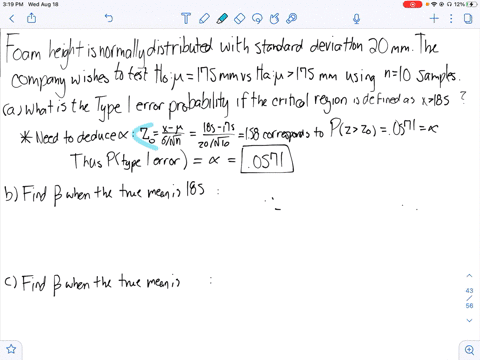 3:19 PM Wed Aug 18
12%
Foam height is normally distributed with standard deviation 20 mm. The
company wishes to test H₀: μ = 175 mm vs Ha: μ > 175 mm using n=10 samples.
(a) What is the Type 1 error probability if the critical region is defined as x̄>185 ?
* Need to deduce α: Z₀ = (x̄-μ)/(σ/√n) = (185-175)/(20/√10) = 1.58 corresponds to P(Z > Z₀) = .0571 = α
Thus P(type 1 error) = α = .0571
b) Find β when the true mean is 185 :
c) Find β when the true mean is :
43
56